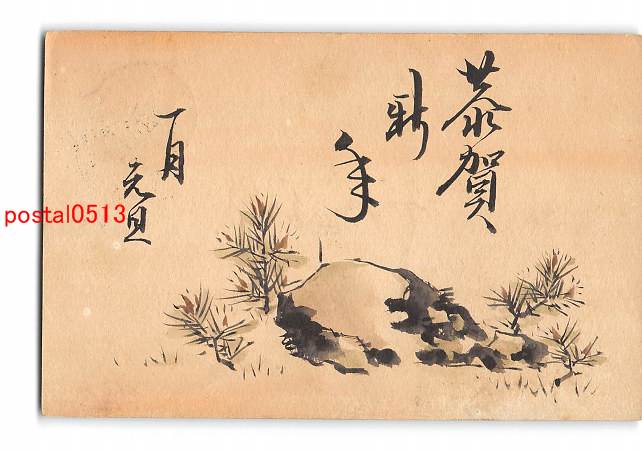 恭賀
新
年
一月
元旦
postal0513